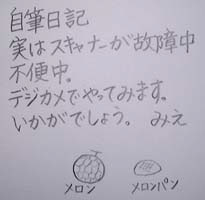 自筆日記
実はスキャナーが故障中
不便中。
デジカメでやってみます。
いかがでしょう。 みえ
メロン メロンパン